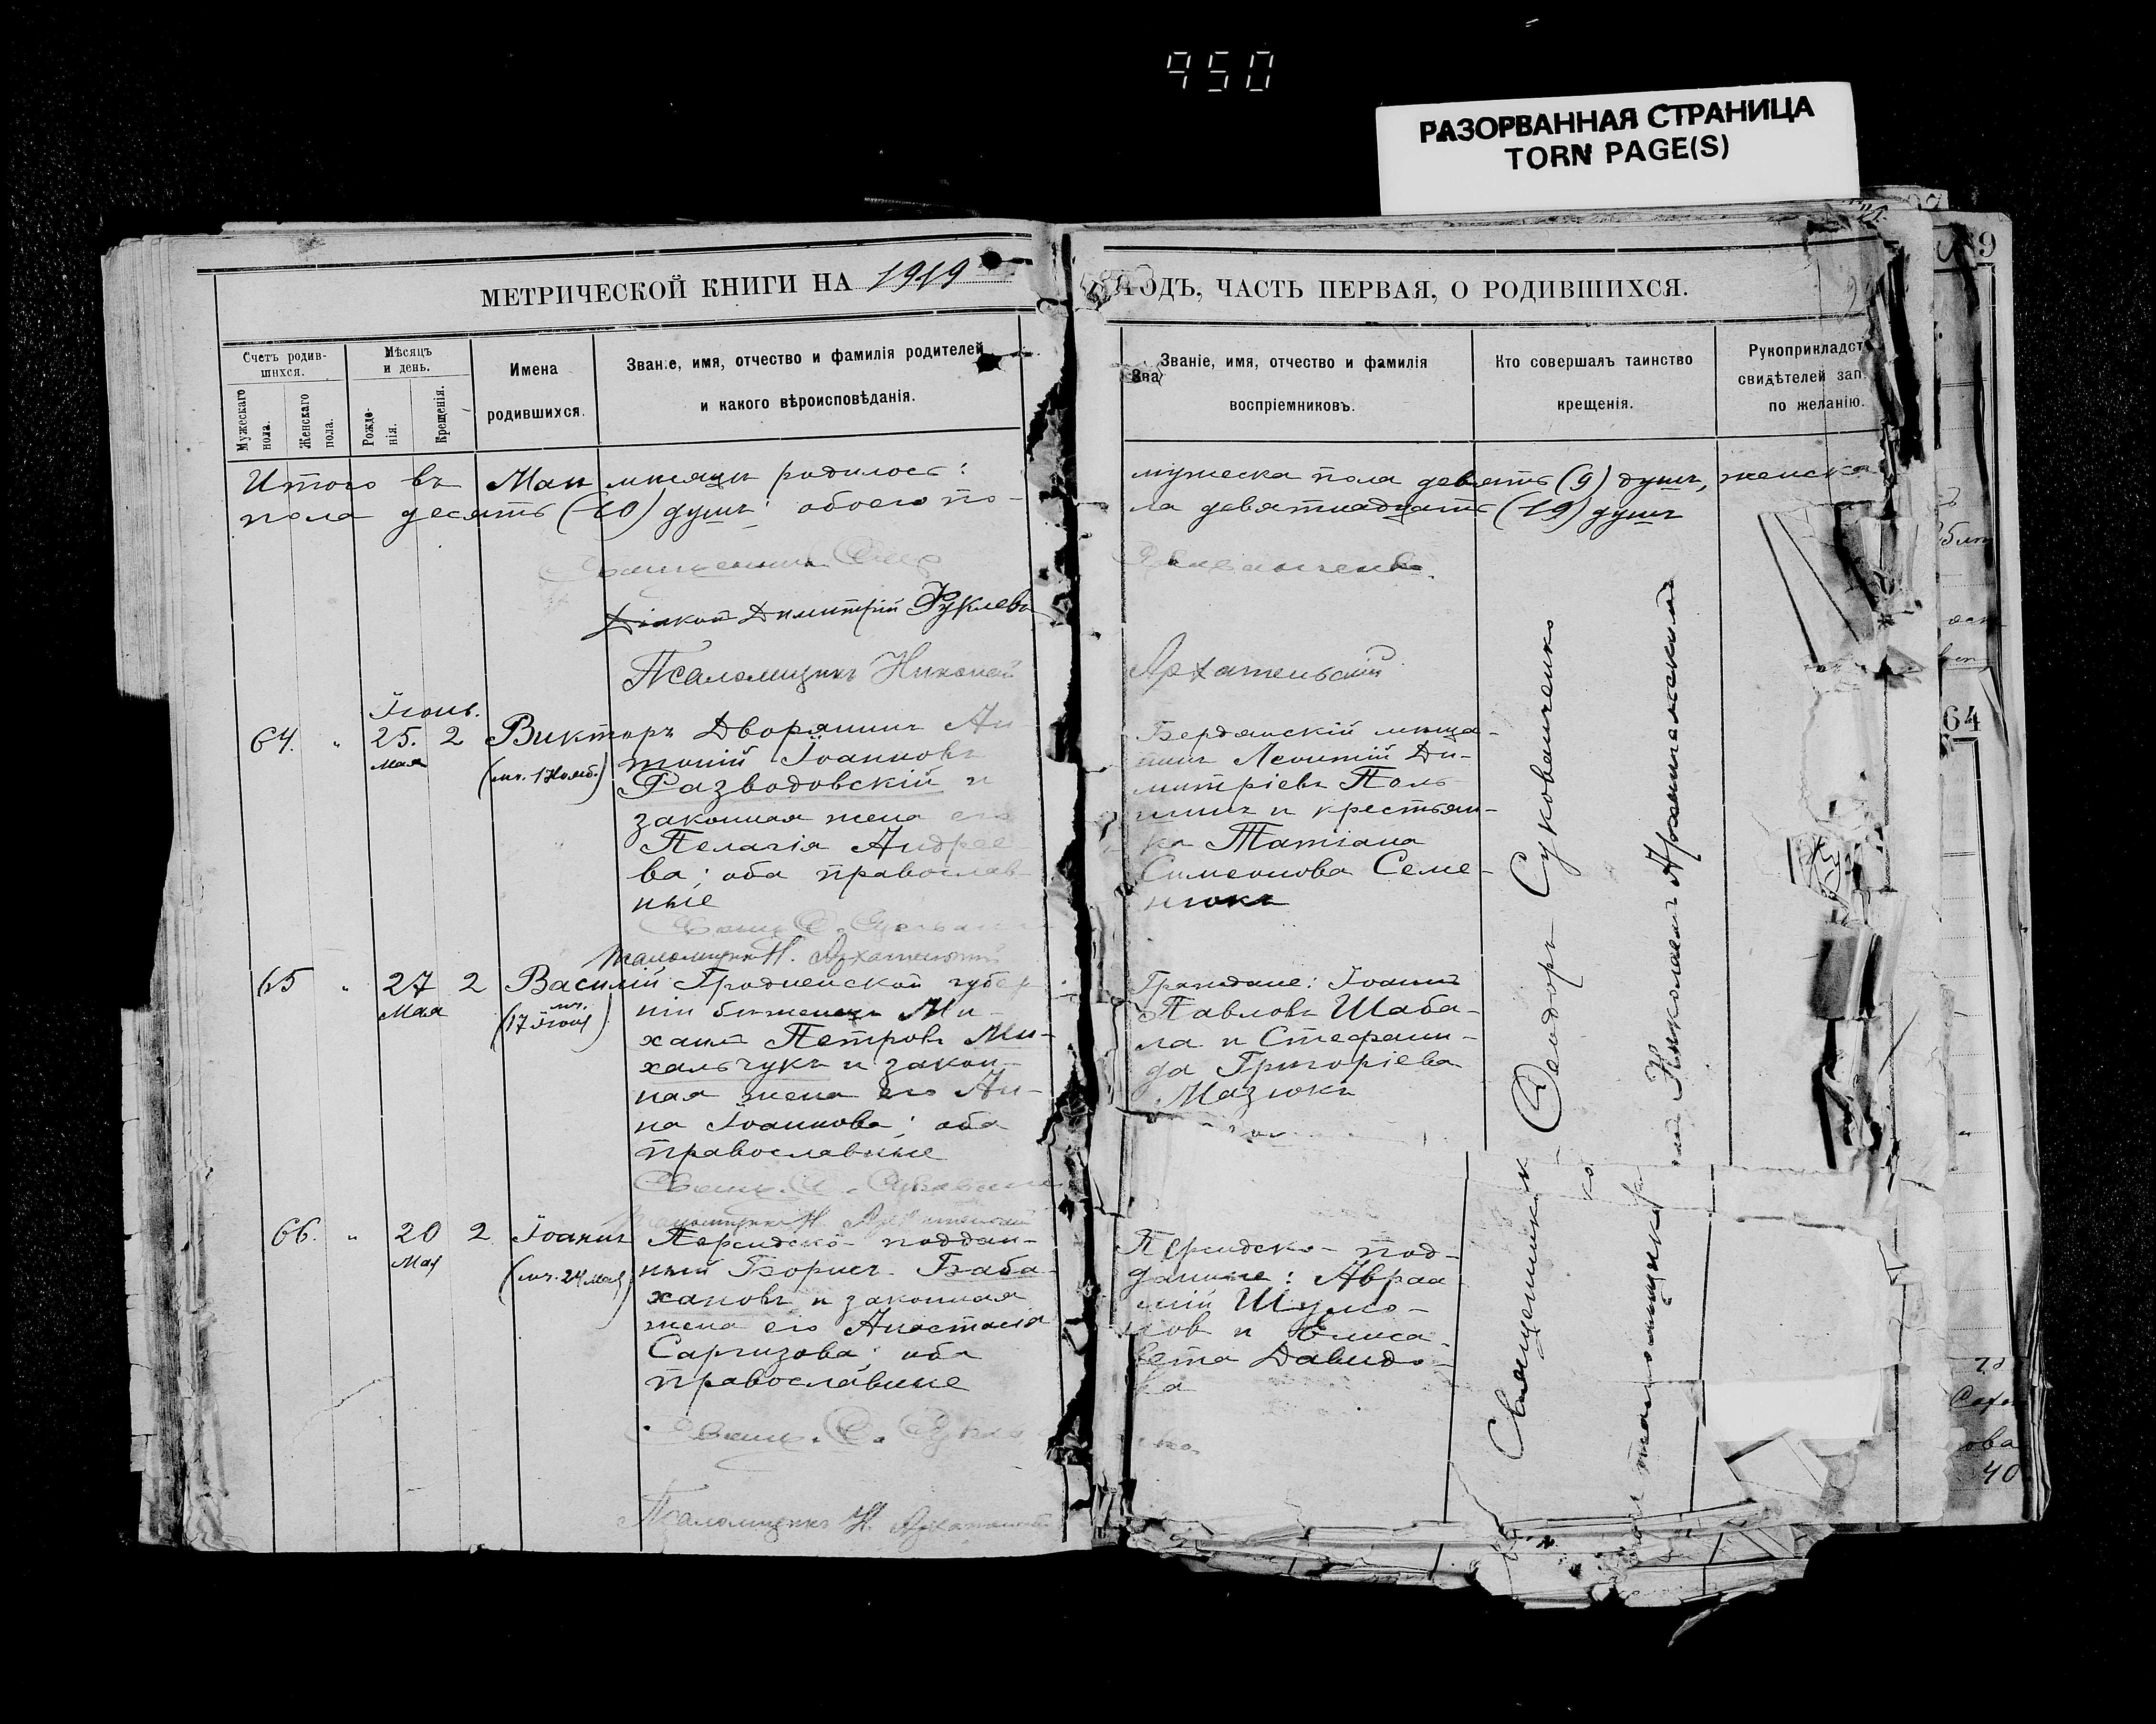 950
РАЗОРВАННАЯ СТРАНИЦА
TORN PAGE(S)
МЕТРИЧЕСКОЙ КНИГИ НА 1919
ГОДЪ, ЧАСТЬ ПЕРВАЯ, О РОДИВШИХСЯ.
Счетъ родив-
шихся.
Мужескаго
пола.
Женскаго
пола.
Мѣсяцъ
и день.
Рожде-
нія.
Крещенія.
Имена
родившихся.
Званіе, имя, отчество и фамилія родителей
и какого вѣроисповѣданія.
Званіе, имя, отчество и фамилія
воспріемниковъ.
Кто совершалъ таинство
крещенія.
Рукоприкладст
свидѣтелей зап.
по желанію.
Итого въ Маи мѣсяцѣ родилось:
пола десять (10) душъ; обоего по-
мужеска пола девять (9) душъ, женска
ла девятнадцать (19) душъ
Діаконъ Димитрій Руклевъ
Псаломщикъ Николай
Архатенскій
64. "
Іюнь.
25. 2
Мая
Викторъ
(мч. 1 Нояб.)
Дворянинъ Ан-
тоній Іоанновъ
Разводовскій и
законная жена его
Пелагія Андрее-
ва; оба православ-
ные
Бердянскій мѣща-
нинъ Леонтій Ди-
митріевъ Поль
и крестьян-
ка Татіана
Симеонова Семе-
нюкъ
Псаломщикъ Н. Архатенскій
65 "
27 2
Мая
Василій
(мч. 17 Іюня)
Гродненской губер
ніи бѣженецъ Ми-
хаилъ Петровъ Ми-
хальчукъ и закон-
ная жена его Ан-
на Іоаннова; оба
православные
Граждане: Іоаннъ
Павловъ Шаба-
ла и Стефани-
да Григоріева
Мазюкъ
66. "
20 2
Мая
Іоаннъ
(мч. 24 Мая)
Персидско-поддан-
ный Борисъ Баба-
хановъ и законная
жена его Анастасія
Саргизова; оба
православные
Персидско-под-
данные: Авраа-
мій Шумо-
новъ и Елиса-
вета Давидо-
ва
Псаломщикъ Н. Архатенскій
Священникъ Ѳеодоръ Суковенченко
псаломщикъ Николаемъ
64
40